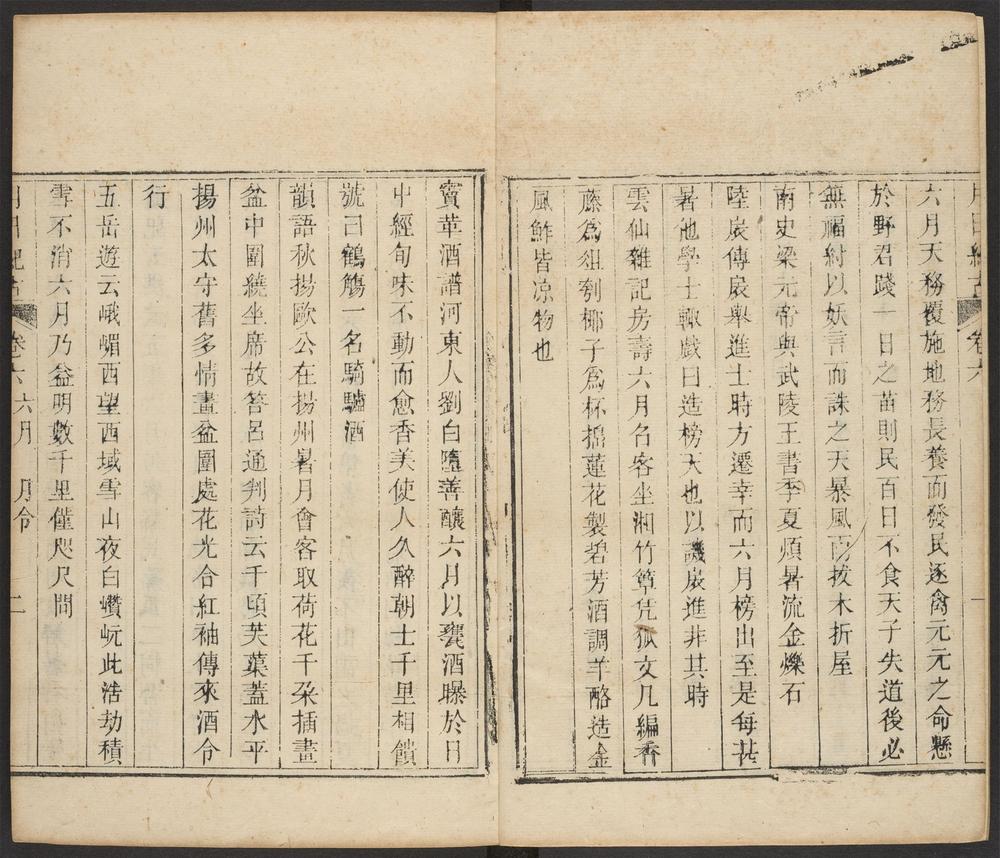 月日紀古　卷六　一
六月天務覆施地務長養而發民逐禽元元之命懸
於野君踐一日之苗則民百日不食天子失道後必
無福紂以妖言而誅之天暴風雨拔木折屋
南史梁元帝與武陵王書季夏煩暑流金爍石
陸扆傳扆舉進士時方遷幸而六月榜出至是每甚
暑他學士輒戲曰造榜天也以譏扆進非其時
雲仙雜記房壽六月召客坐湘竹簟凭狐文几編香
藤為俎刳椰子爲杯搗蓮花製碧芳酒調羊酪造金
風鮓皆凉物也
竇革酒譜河東人劉白墮善釀六月以甕酒曝於日
中經旬味不動而愈香美使人久醉朝士千里相饋
號曰鶴觴一名騎驢酒
韻語秋揚歐公在揚州暑月會客取荷花千朶插畫
盆中圍繞坐席故答呂通判詩云千頃芙蕖蓋水平
揚州太守舊多情畫盆圍處花光合紅袖傳來酒令
行
五岳遊云峨嵋西望西域雪山夜白巑岏此浩劫積
雪不消六月乃益明數千里僅咫尺間
月日紀古　卷六　六月　月令　二